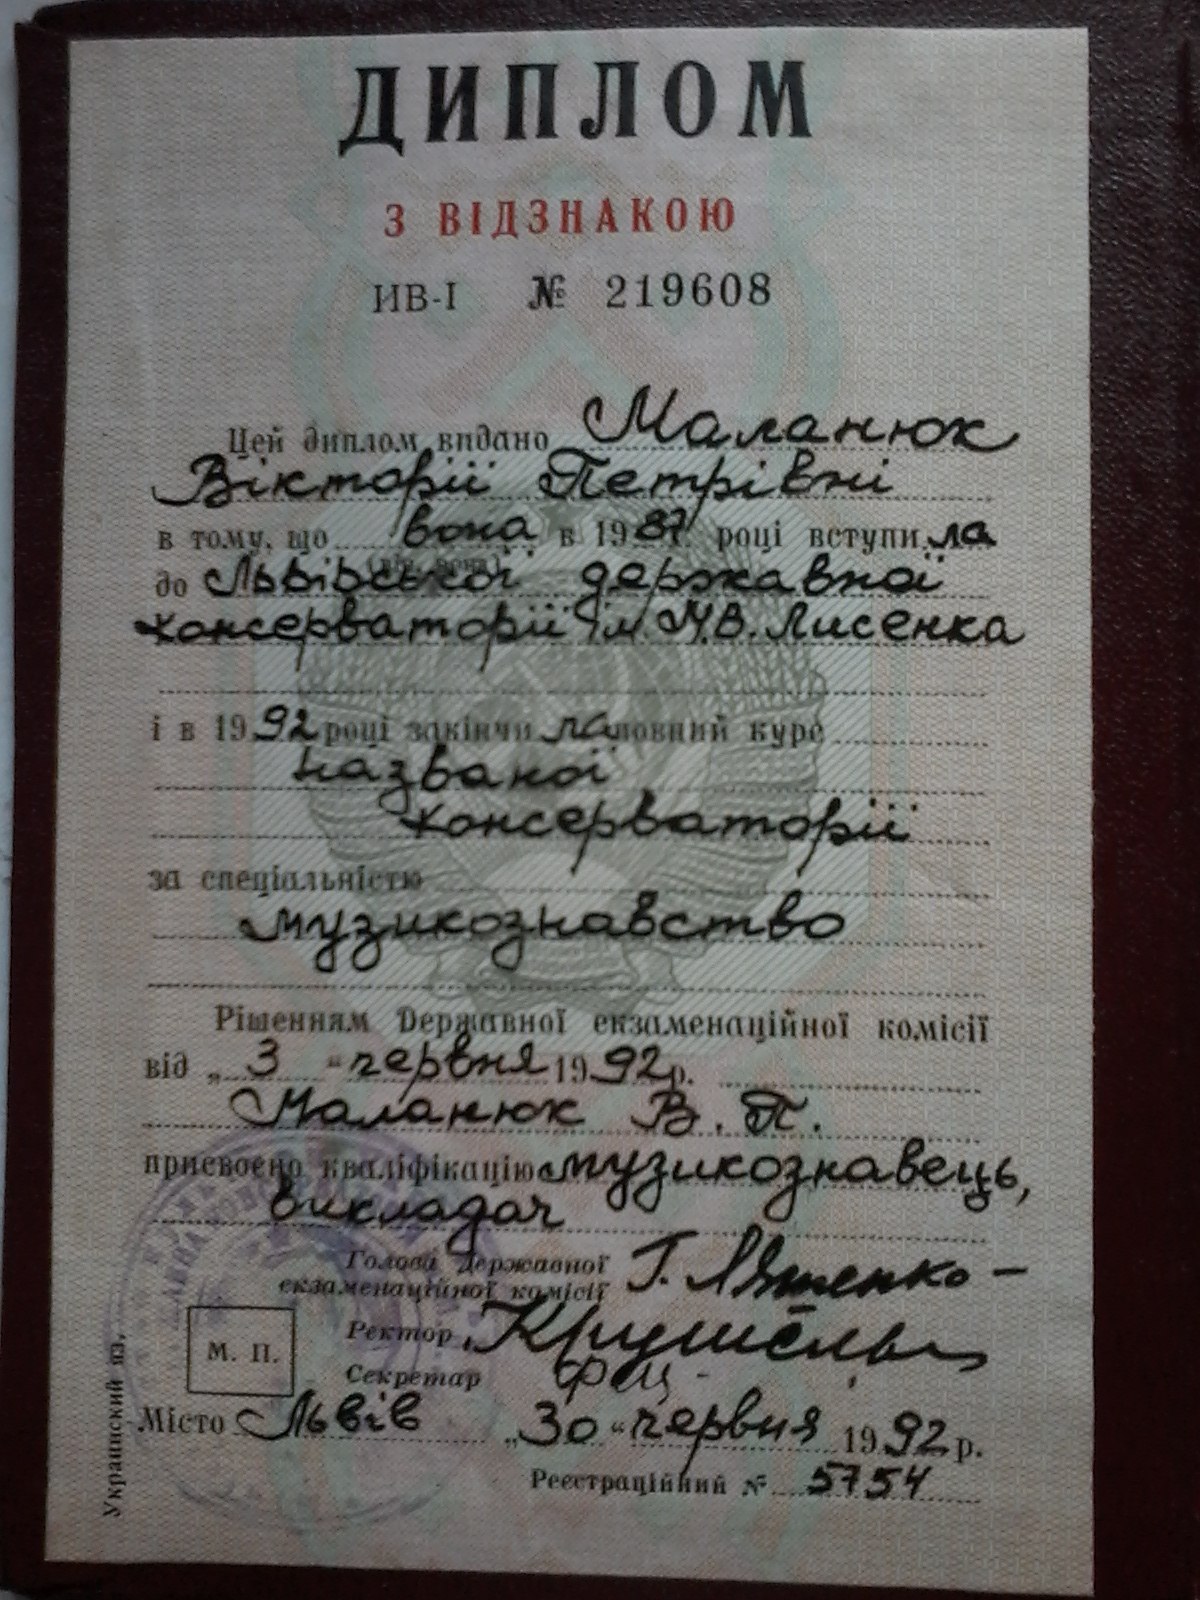 ДИПЛОМ
З ВІДЗНАКОЮ
ИВ-І № 219608
Цей диплом видано Маланюк
Вікторії Петрівні
в тому, що вона в 1987 році вступила
до Львівської державної
консерваторії ім. М.В. Лисенка
і в 1992 році закінчила повний курс
названої
консерваторії
за спеціальністю
музикознавство
Рішенням Державної екзаменаційної комісії
від „3“ червня 1992 р.
Маланюк В. П.
присвоєно кваліфікацію музикознавець,
викладач
Голова Державної
екзаменаційної комісії Г. Ляшенко
Ректор
Секретар
М. П.
Місто Львів „30“ червня 1992 р.
Реєстраційний № 5754
Украинский яз.